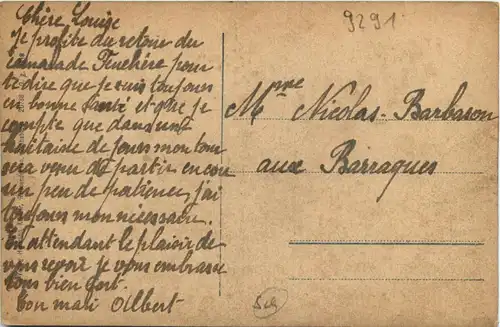 Chère Louise
Je profite du retour du
camarade Feuchère pour
te dire que je suis toujours
en bonne santé et que je
compte que dans une
huitaine de jours mon tour
sera venu de partir encore
un peu de patience, j'ai
toujours mon necessaire.
En attendant le plaisir de
vous revoir je vous embrasse
tous bien fort.
Ton mari Albert
9291
Mme Nicolas-Barbason
aux Barraques